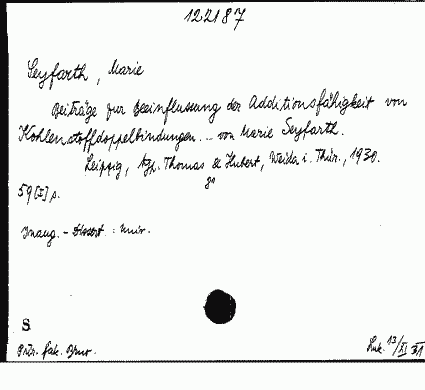 122187
Seyfarth, Marie
Beiträge zur Beeinflussung der Additionsfähigkeit von
Kohlenstoffdoppelbindungen... von Marie Seyfarth.
Leipzig, Typ. Thomas & Hubert, Weida i. Thür., 1930.
8°
59 [I] s.
Inaug. - Dissert. : Univ.
S
Přír. fak. Brno.
Luk. 13/XI 31